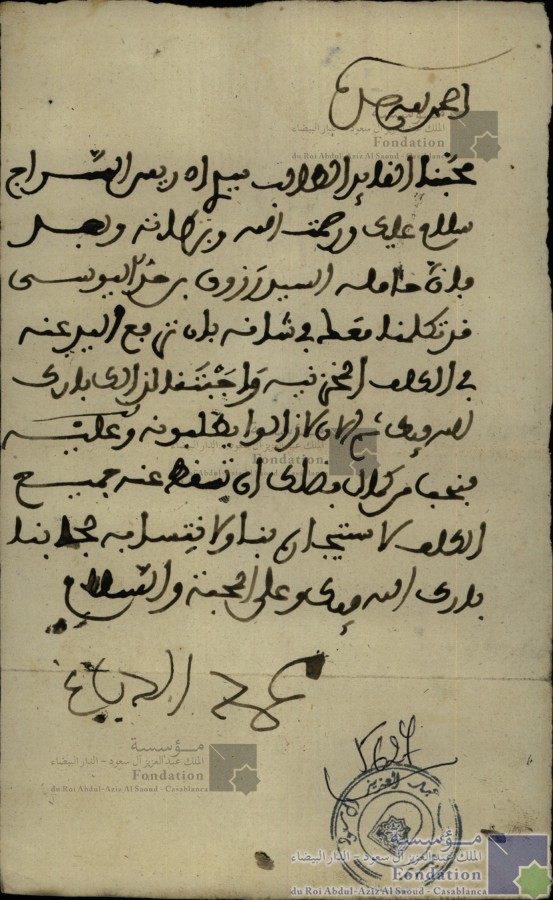 الحمد لله وحده
محبنا القايد الطالب سيدي ادريس السراج
سلام عليك ورحمت الله وبركاته وبعد
فإن حامله السيد رزوق بن اليوسي
قد تكلمنا معك في شانه بان ترفع اليد عنه
في الكلف المخزنية واجبتنا لذالك بارك
الله فيك ثم الان لا زالوا يطلبونه وعليه
فنحب من كمال فضلك ان تسقط عنه جميع
الكلف لا بنا ولانتسابه لجانبنا
بارك الله فيك وعلى المحبة والسلام
محمد الدباغ
مؤسسة
الملك عبد العزيز آل سعود - الدار البيضاء
Fondation
du Roi Abdul-Aziz Al Saoud - Casablanca